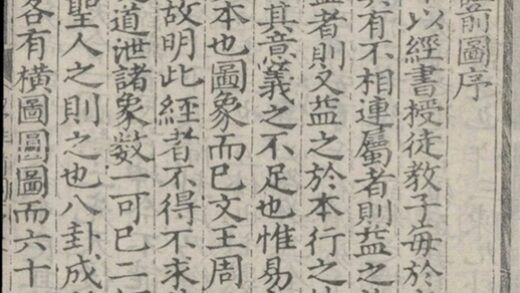 前圖序
以經書授徒教子每於
其有不相連屬者則益之
益者則又益之於本行之
其意義之不足也惟易
本也圖象而已文王周
故明此經者不得不求
道泄諸象數一可已二
聖人之則之也八卦成
各有橫圖圓圖而六十